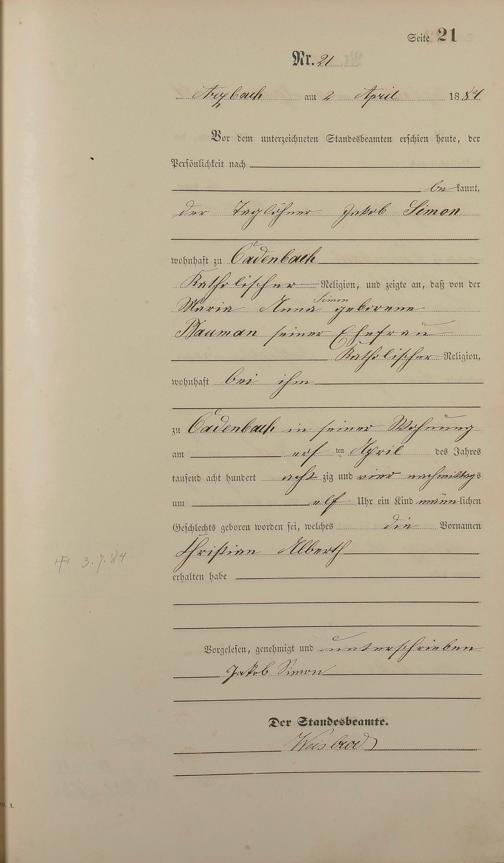 Seite 21
Nr. 21
Arzbach am 2 April 1884
Vor dem unterzeichneten Standesbeamten erschien heute, der
Persönlichkeit nach
be kannt,
der Taglöhner Jakob Simon
wohnhaft zu Cadenbach
Katholischer Religion, und zeigte an, daß von der
Simon
Maria Anna geborene
Nauman seiner Ehefrau
Katholischer Religion,
wohnhaft bei ihm
zu Cadenbach in seiner Wohnung
am ten April des Jahres
tausend acht hundert acht zig und vier nachmittags
um elf Uhr ein Kind männlichen
Geschlechts geboren worden sei, welches die Vornamen
Christian Alberth
erhalten habe
3.7.84
Vorgelesen, genehmigt und unterschrieben
Jakob Simon
Der Standesbeamte.
Weisbrod